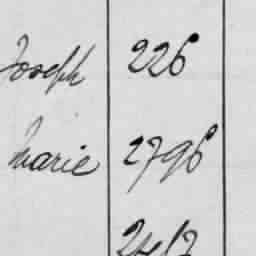 Joseph 226
Marie 2796